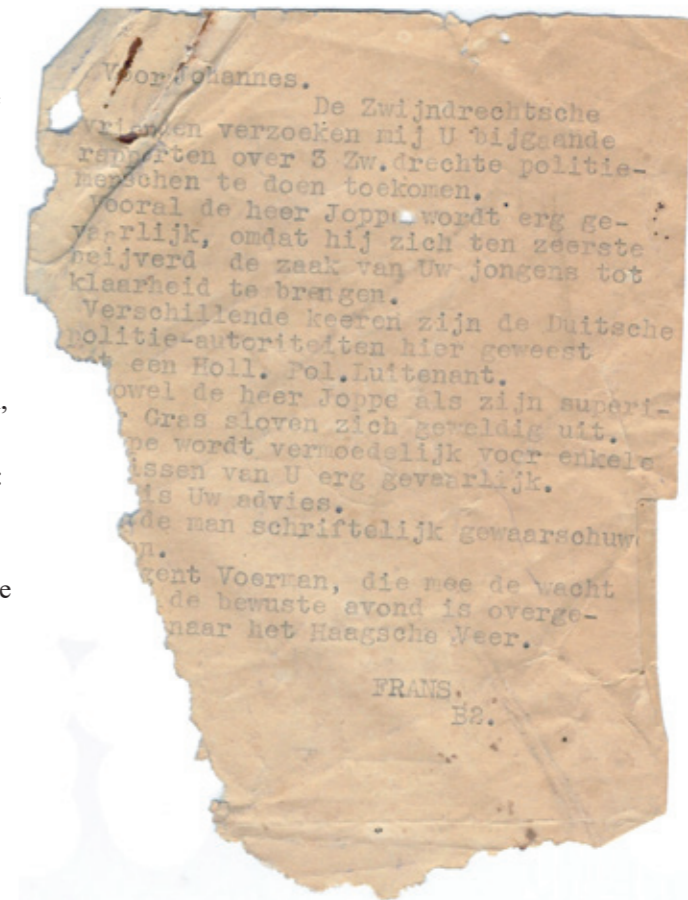 Voor Johannes.
De Zwijndrechtsche
vrienden verzoeken mij U bijgaande
rapporten over 3 Zw.drechte politie-
menschen te doen toekomen.
Vooral de heer Joppe wordt erg ge-
vaarlijk, omdat hij zich ten zeerste
beijverd de zaak van Uw jongens tot
klaarheid te brengen.
Verschillende keeren zijn de Duitsche
politie-autoriteiten hier geweest
een Holl. Pol.Luitenant.
owel de heer Joppe als zijn superi-
r Gras sloven zich geweldig uit.
pe wordt vermoedelijk voor enkele
issen van U erg gevaarlijk.
is Uw advies.
de man schriftelijk gewaarschuw
n.
gent Voerman, die mee de wacht
de bewuste avond is overge-
naar het Haagsche Veer.
FRANS.
B2.
e